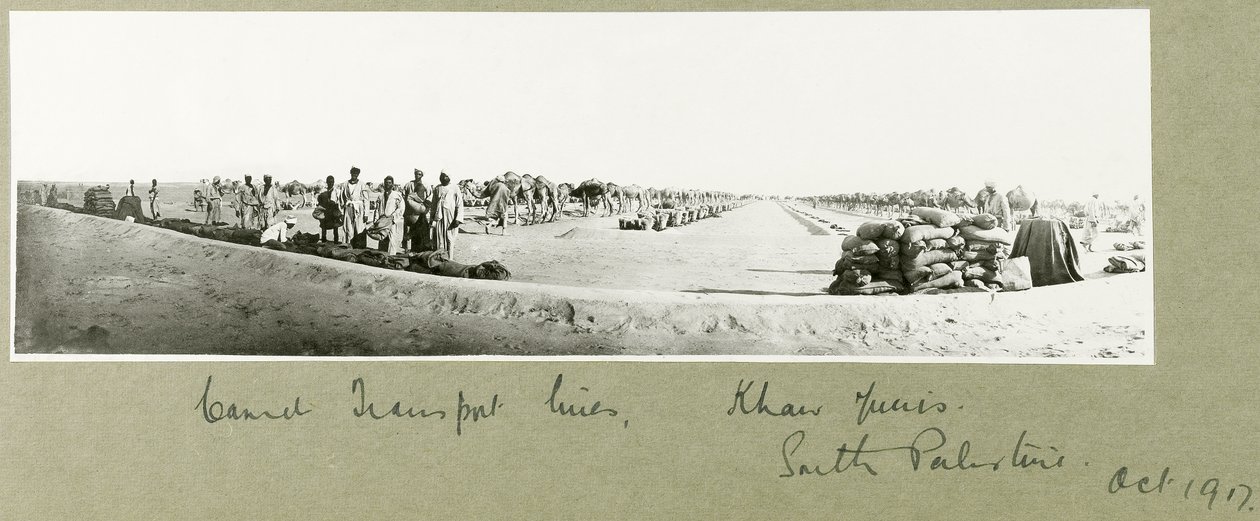 Camel Transport lines, Khan Yunis.
South Palestine.
Oct 1917.